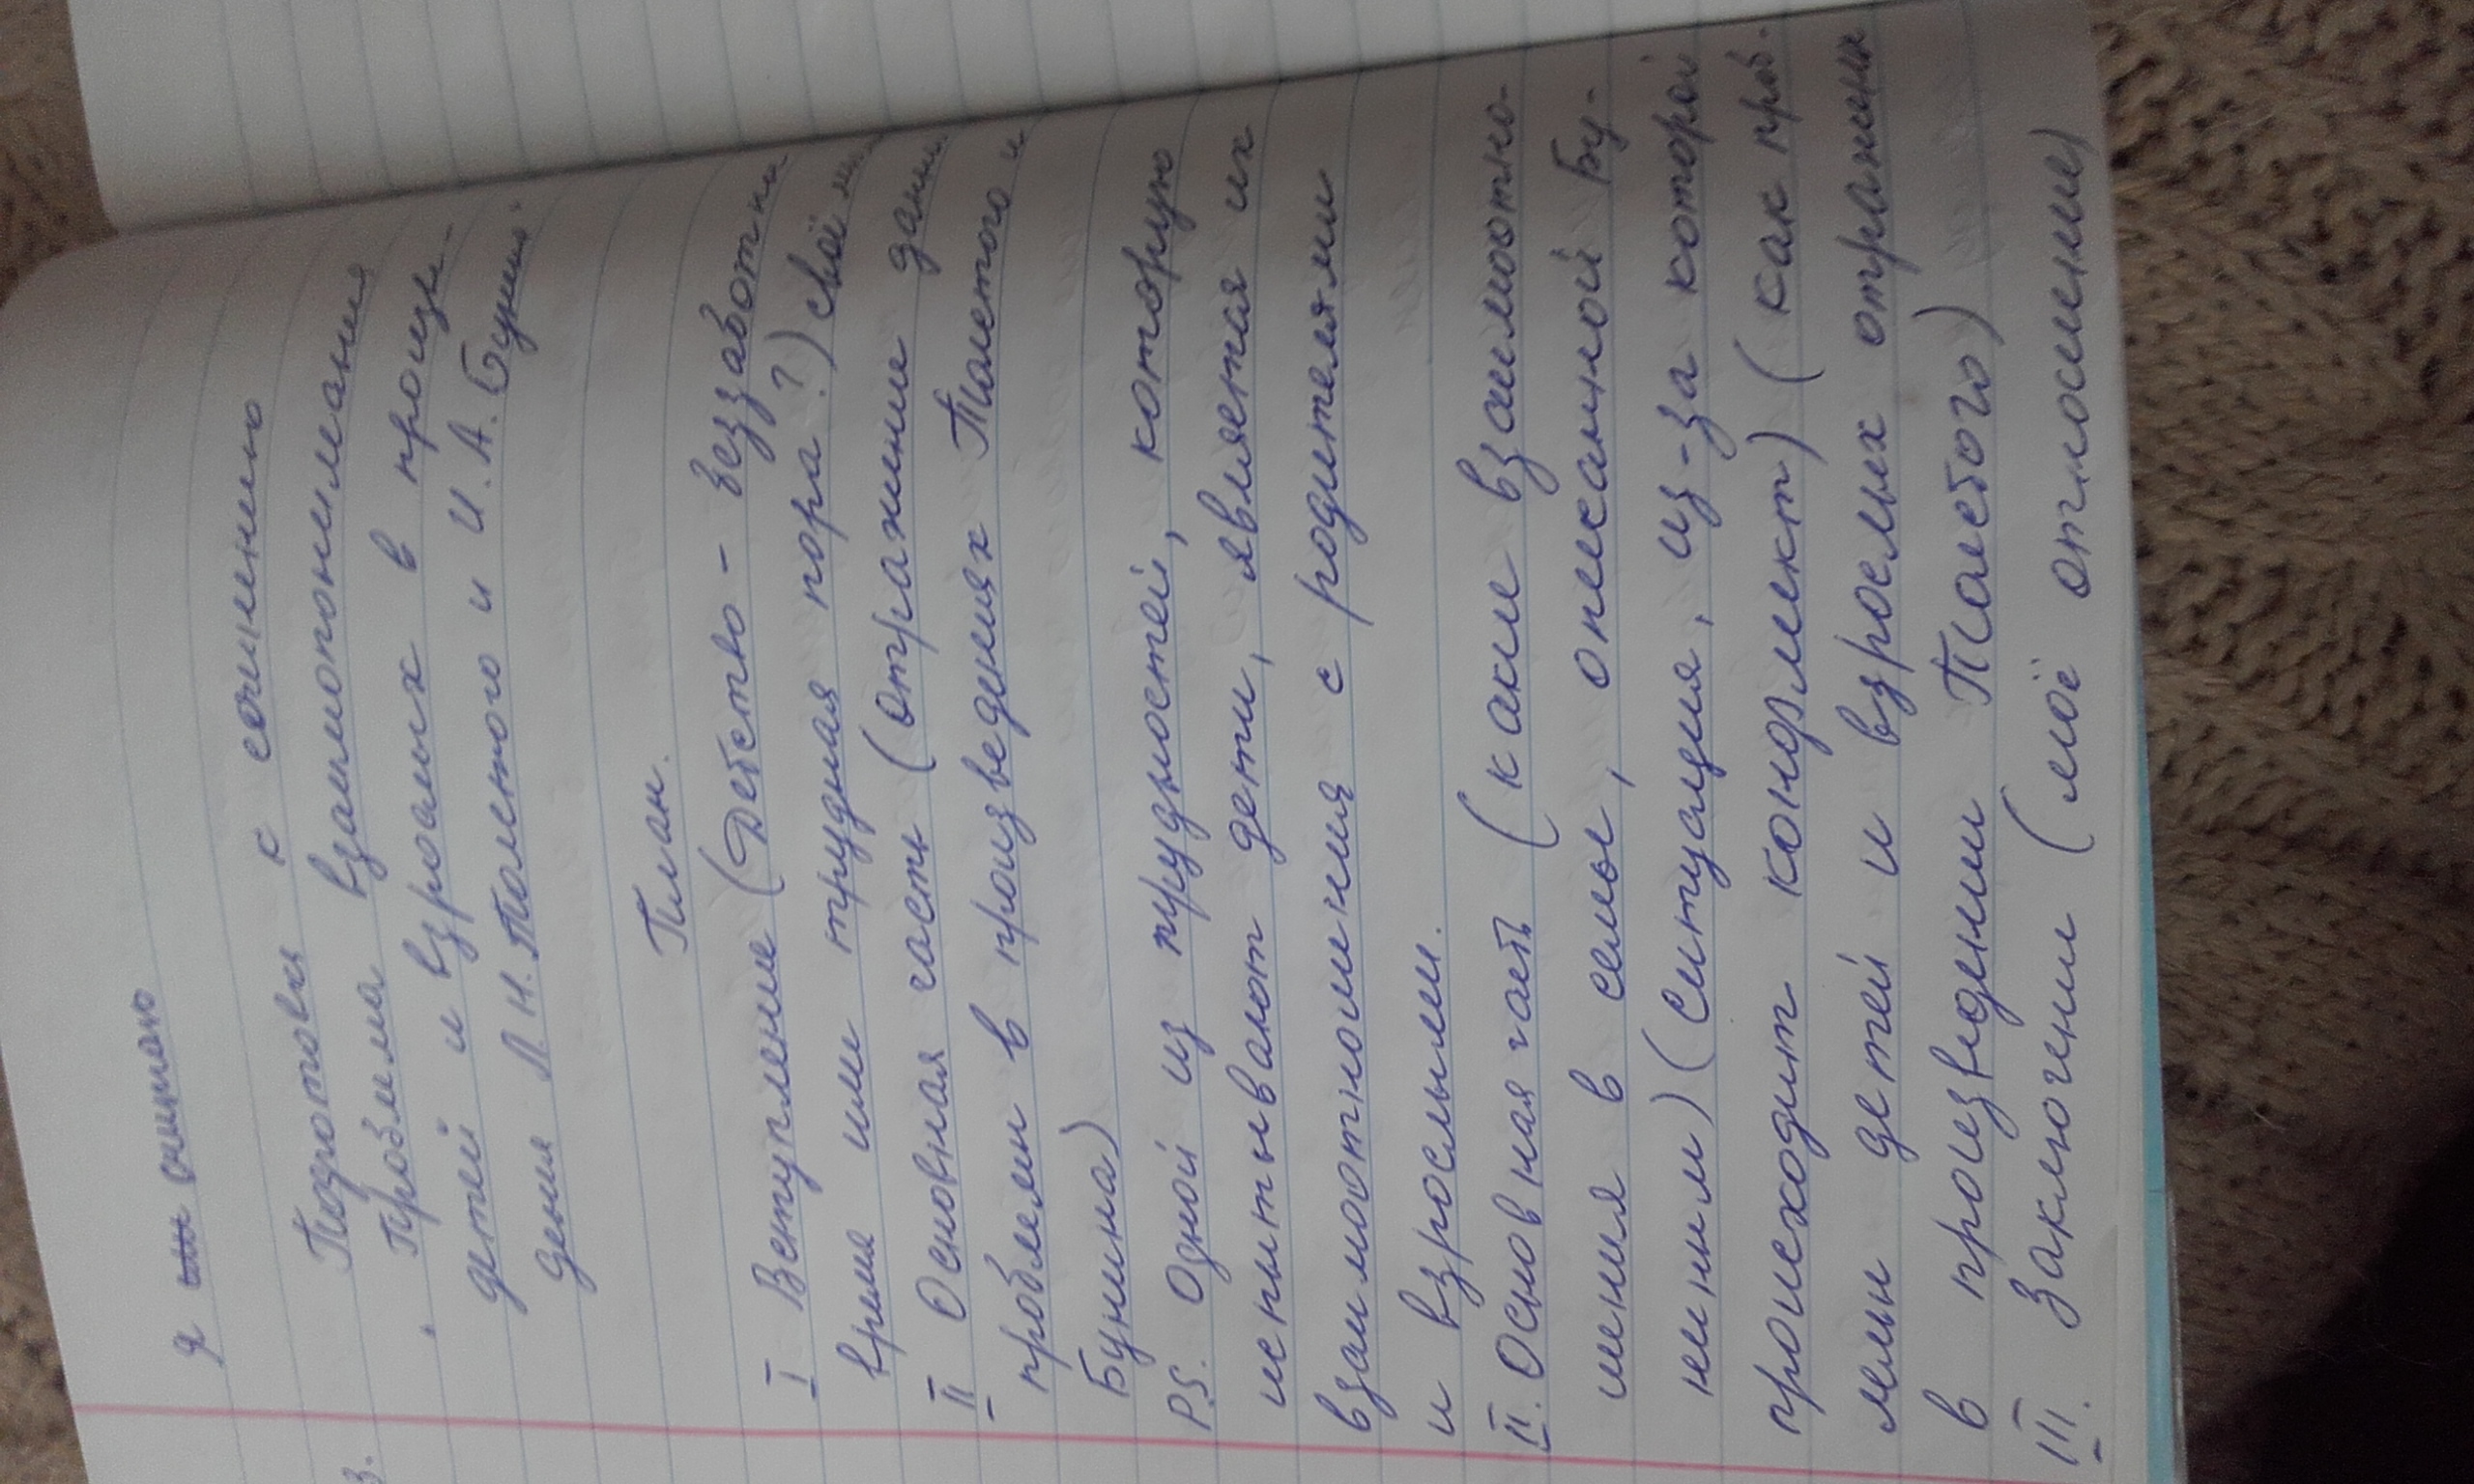 я считаю
Подготовка к сочинению
Проблема взаимопонимания
детей и взрослых в произве-
дения Л.Н.Толстого и И.А.Бунин.
План.
I Вступление (Детство - беззаботн
время или трудная порa?) своё мн.
II Основная часть (отражение данн
проблем в произведениях Толстого и
Бунина)
P.S. Одной из трудностей, которую
испытывают дети, является их
взаимоотношения с родителями
и взрослыми.
II. Основная часть (какие взаимоотно-
шения в семье, описанной Бу-
ниным) (ситуация, из-за которой
происходит конфликт) (как проб.
лемы детей и взрослых отражены
в произведении Толстого)
III. Заключении (моё отношение)